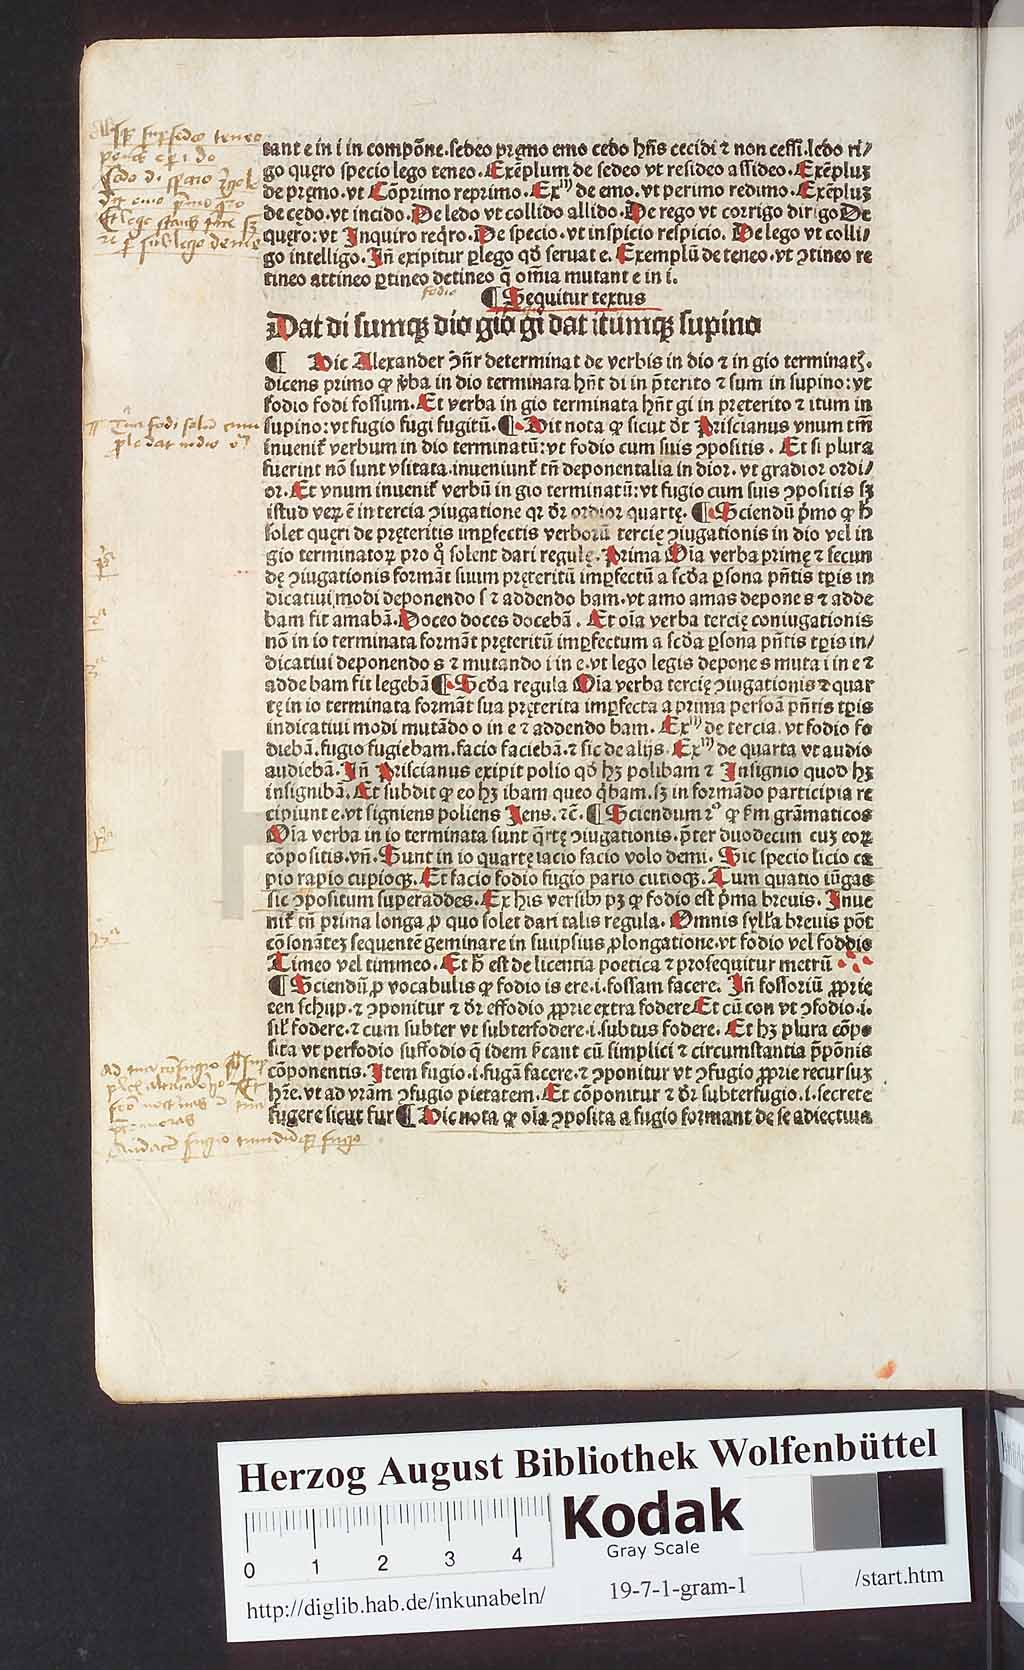 tant e in i in compōne. sedeo pręmo emo cedo hn̄s cecidi ⁊ non cessi. ledo ri/
go quęro specio lego teneo. Exēplum de sedeo vt resideo assideo. Exēpluꝫ
de pręmo. vt Cōprimo reprimo. Exᵐ de emo. vt perimo redimo. Exēpluꝫ
de cędo. vt incido. De ledo vt collido allido. De rego vt corrigo dirigo De
quęro: vt Inquiro req̇ro. De specio. vt inspicio respicio. De lego vt colli/
go intelligo. In̄ exipitur ꝑlego qđ seruat e. Exemplū de teneo. vt ꝯtineo re
tineo attineo ꝑtineo detineo q̄ om̄ia mutant e in i.
fodio
¶ Sequitur textus
Dat di sumqꝫ dio gio gi dat itumqꝫ supino
¶ Hic Alexander ꝯn̄r determinat de verbis in dio ⁊ in gio terminatꝭ.
dicens primo ꝙ v̄ba in dio terminata hn̄t di in p̄terito ⁊ sum in supino: vt
fodio fodi fossum. Et verba in gio terminata hn̄t gi in pręterito ⁊ itum in
supino: vt fugio fugi fugitū. ¶ Hit nota ꝙ sicut dt̄ Priscianus vnum tm̄
inuenit᷑ verbum in dio terminatū: vt fodio cum suis ꝯpositis. Et si plura
fuerint nō sunt vsitata. inueniunt᷑ tn̄ deponentalia in dior. vt gradior ordi/
or. Et vnum inuenit᷑ verbū in gio terminatū: vt fugio cum suis ꝯpositis sꝫ
istud veꝝ ē in tercia ꝯiugatione qꝛ dr̄ ordior quartę. ¶ Sciendū p̄mo ꝙ h̄
solet quęri de pręteritis imꝑfectis verborū tercię ꝯiugationis in dio vel in
gio terminatoꝝ pro q̊ solent dari regulę. Prima Oīa verba primę ⁊ secun
dę ꝯiugationis formāt suum pręteritū imꝑfectū a scd̄a ꝑsona pn̄tis tꝑis in
dicatiui modi deponendo s ⁊ addendo bam. vt amo amas depone s ⁊ adde
bam fit amabā. Doceo doces docebā. Et oīa verba tercię coniugationis
nō in io terminata formāt pręteritū imꝑfectum a scd̄a ꝑsona pn̄tis tꝑis in/
dicatiui deponendo s ⁊ mutando i in e. vt lego legis depone s muta i in e ⁊
adde bam fit legebā ¶ Scd̄a regula Oīa verba tercię ꝯiugationis ⁊ quar
tę in io terminata formāt sua pręterita imꝑfecta a prima persōa pn̄tis tꝑis
indicatiui modi mutādo o in e ⁊ addendo bam. Exᵐ de tercia. vt fodio fo
diebā. fugio fugiebam. facio faciebā. ⁊ sic de alijs. Exᵐ de quarta vt audio
audiebā. In̄ Priscianus exipit polio qđ hꝫ polibam ⁊ Insignio quod hꝫ
insignibā. Et subdit ꝙ eo hꝫ ibam queo q̇bam. sꝫ in formādo participia re
cipiunt e. vt signiens poliens Iens. ⁊c̄. ¶ Sciendum ꝙ s̄m grāmaticos
Oīa verba in io terminata sunt q̄rtę ꝯiugationis. p̄ter duodecim cuꝫ eoꝝ
cōpositis. vn̄. Sunt in io quartę iacio facio volo demi. Sic specio licio ca
pio rapio cupioqꝫ. Et facio fodio fugio pario cutioqꝫ. Tum quatio iūgas
sic ꝯpositum superaddes. Ex his versibꝰ pꝫ ꝙ fodio est p̄ma breuis. Inue
nit᷑ tn̄ prima longa ꝓ quo solet dari talis regula. Omnis sylľa breuis pōt
cōsonāteꝫ sequentē geminare in sui ipsius ꝓlongatione. vt fodio vel foddio
Timeo vel timmeo. Et h̄ est de licentia poetica ⁊ prosequitur metrū
¶ Sciendū ꝓ vocabulis ꝙ fodio is ere. i. fossam facere. In̄ fossoriū ꝓprie
een schup. ⁊ ꝯponitur ⁊ dr̄ effodio ꝓprie extra fodere Et cū con vt ꝯfodio. i.
siľ fodere. ⁊ cum subter vt subterfodere. i. subtus fodere. Et hꝫ plura cōpo
sita vt perfodio suffodio q̄ idem s̄cant cū simplici ⁊ circumstantia p̄pōnis
cōponentis. Item fugio. i. fugā facere. ⁊ ꝯponitur vt ꝯfugio ꝓprie recursuꝫ
hr̄e. vt ad vr̄am ꝯfugio pietatem. Et cōponitur ⁊ dr̄ subterfugio. i. secrete
fugere sicut fur ¶ Hic nota ꝙ oīa ꝯposita a fugio formant de se adiectiuus
Herzog August Bibliothek Wolfenbüttel
0 1 2 3 4
Kodak
Gray Scale
http://diglib.hab.de/inkunabeln/
19-7-1-gram-1
/start.htm